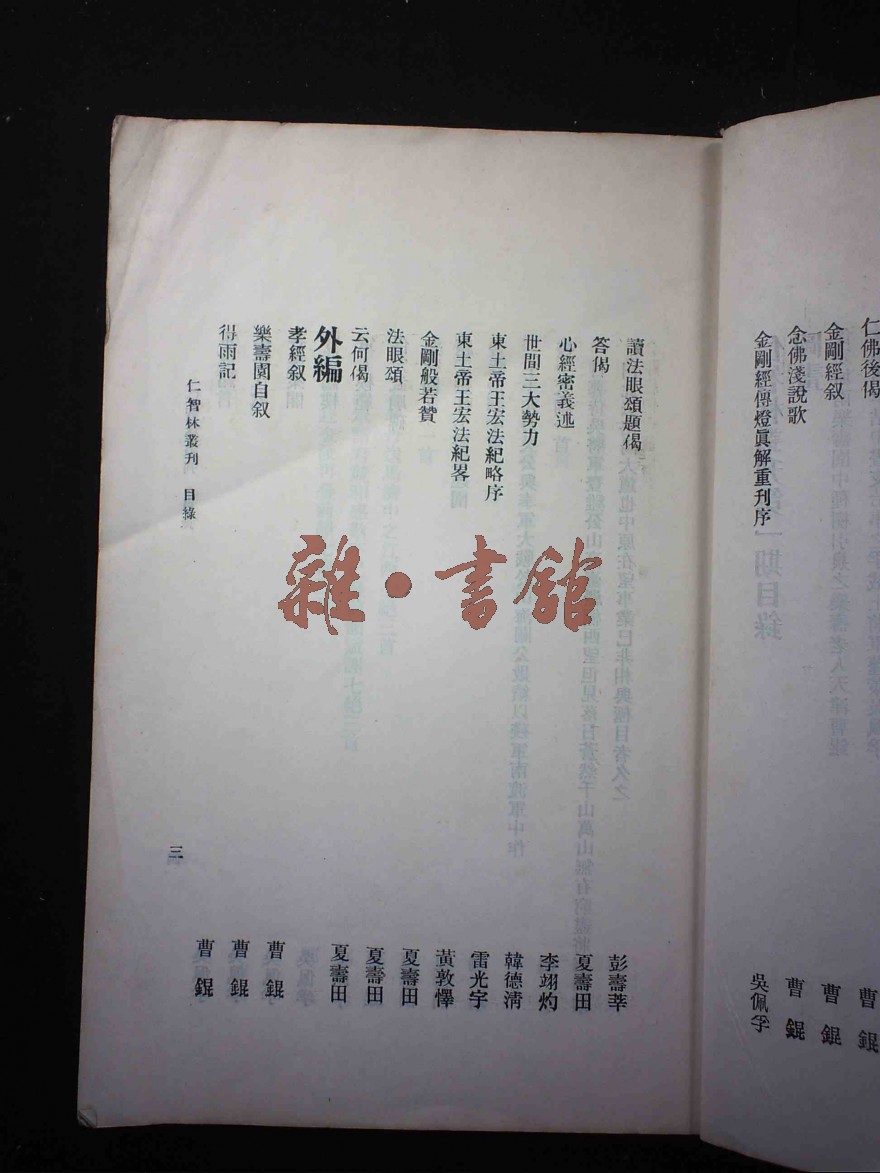 仁佛後偈 曹錕
金剛經叙 曹錕
念佛淺說歌 曹錕
金剛經傳燈眞解重刋序 吳佩孚
讀法眼頌題偈 彭壽莘
答偈 夏壽田
心經密義述 李翊灼
世間三大勢力 韓德淸
東土帝王宏法紀略序 雷光宇
東土帝王宏法紀畧 黃敦懌
金剛般若贊 夏壽田
法眼頌 夏壽田
云何偈 夏壽田
外編
孝經叙 曹錕
樂壽園自叙 曹錕
得雨記 曹錕
仁智林叢刋 目錄 三
雜·書館